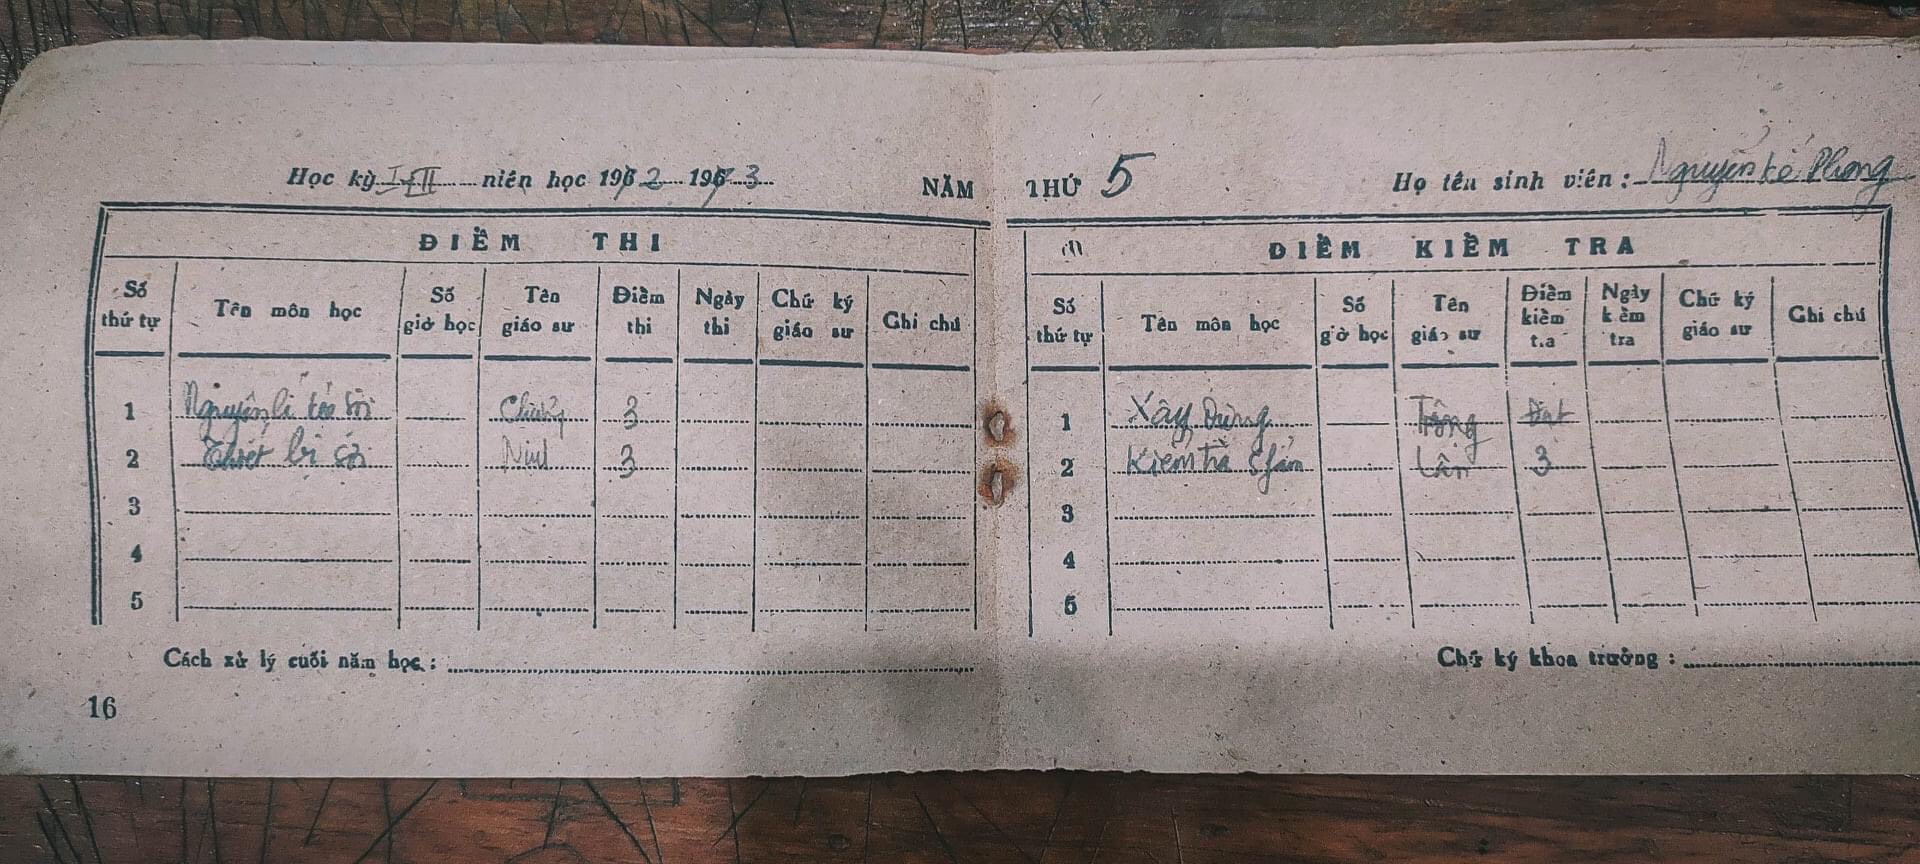 Học kỳ I+II niên học 1972 1973
NĂM THỨ 5
Họ tên sinh viên : Nguyễn Phong
ĐIỂM THI
Số thứ tự Tên môn học Số giờ học Tên giáo sư Điểm thi Ngày thi Chữ ký giáo sư Ghi chú
1 Nguyên lí sợi 3
2 Thiết bị sợi 3
3
4
5
Cách xử lý cuối năm học :
16
ĐIỂM KIỂM TRA
Số thứ tự Tên môn học Số giờ học Tên giáo sư Điểm kiểm tra Ngày kiểm tra Chữ ký giáo sư Ghi chú
1 Xây Dựng Đạt
2 Kiểm tra Lân 3
3
4
5
Chữ ký khoa trưởng :